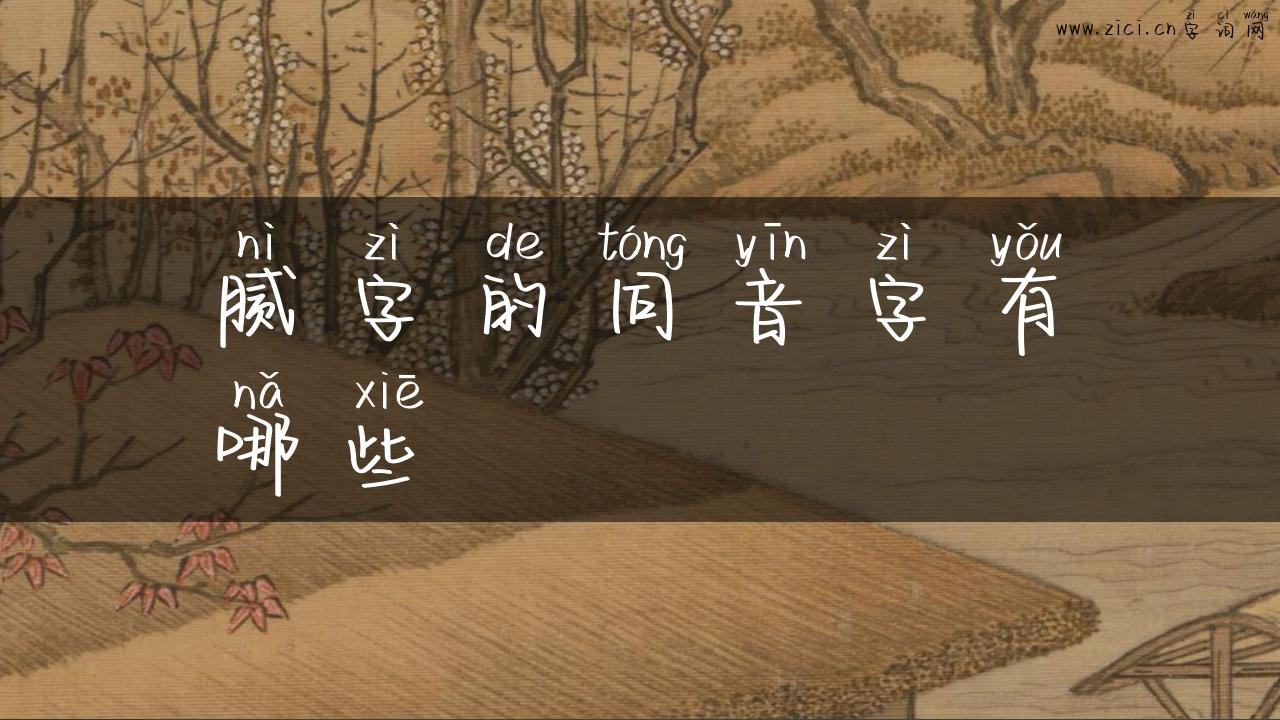 zì cí wǎng
www.zici.cn字词网
nì zì de tóng yīn zì yǒu
腻字的同音字有
nǎ xiē
哪些